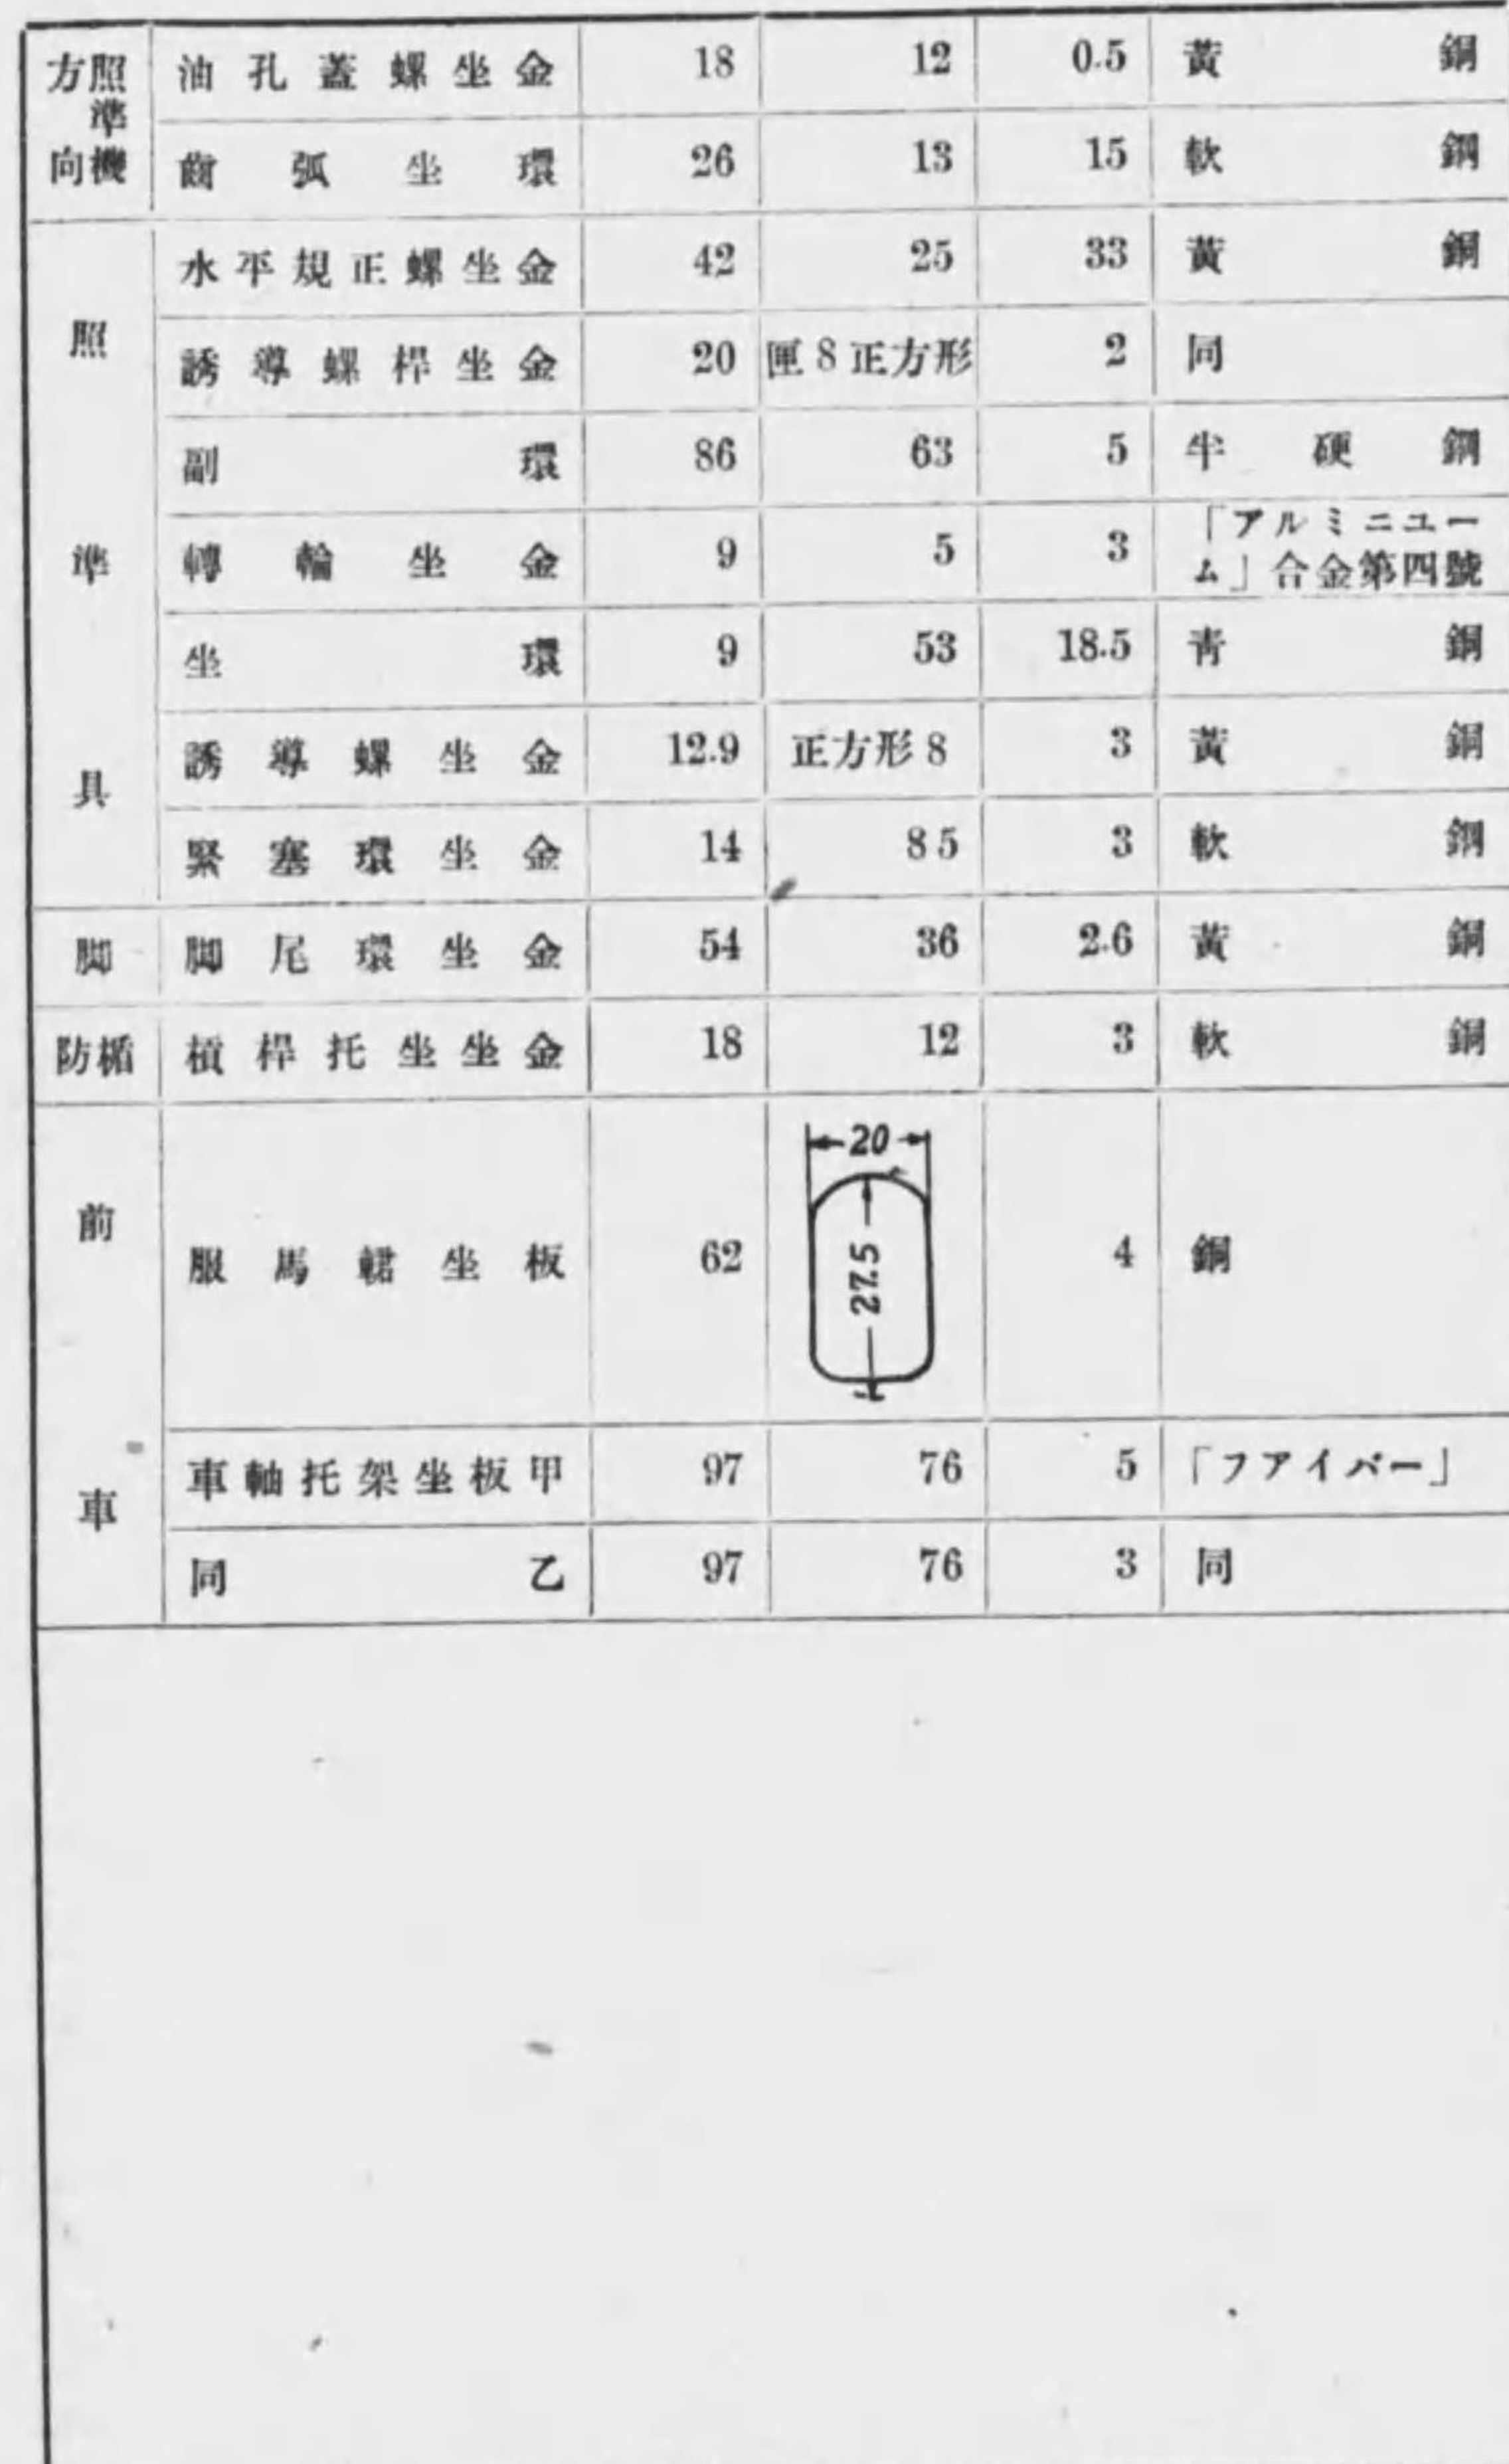 方向照準機 油孔蓋螺坐金 18 12 0.5 黃銅
齒弧坐環 26 13 15 軟鋼
照準具 水平規正螺坐金 42 25 33 黃銅
誘導螺桿坐金 20 匣8正方形 2 同
副環 86 63 5 半硬鋼
轉輪坐金 9 5 3 「アルミニユー
ム」合金第四號
坐環 9 53 18.5 靑銅
誘導螺坐金 12.9 正方形8 3 黃銅
緊塞環坐金 14 8 5 3 軟鋼
脚 脚尾環坐金 54 36 2.6 黃銅
防楯 槓桿托坐坐金 18 12 3 軟鋼
前車 服馬 坐板 62 20 27.5 4 鋼
車軸托架坐板甲 97 76 5 「フアイバー」
同乙 97 76 3 同